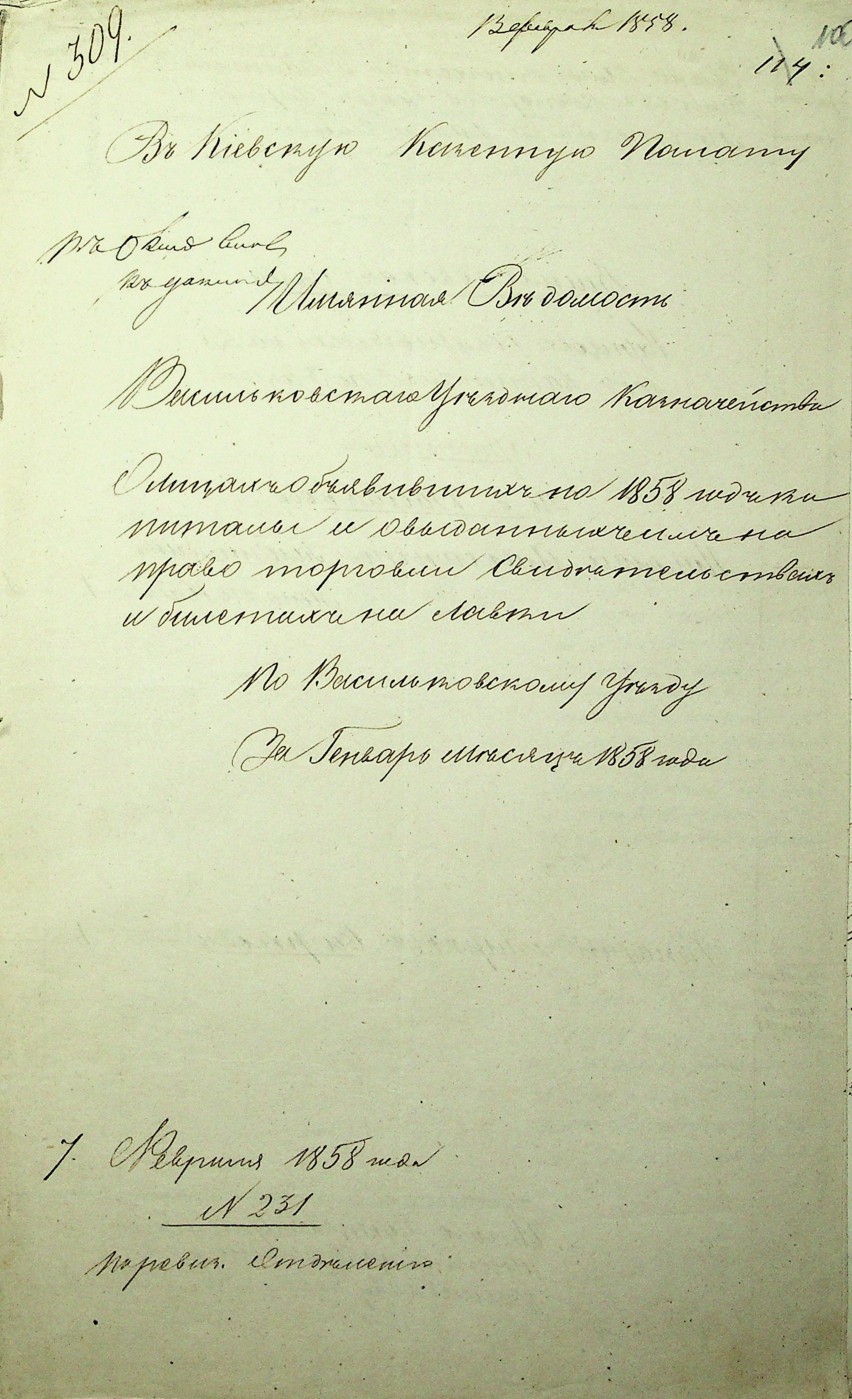 N 309.
13 февраля 1858.
114:
Въ Кіевскую Казенную Палату
Имянная Вѣдомость
Васильковскаго Уѣзднаго Казначейства
О лицахъ объявившихъ на 1858 годъ ка
питалы и о выданныхъ имъ на
право торговли Свидѣтельствахъ
и билетахъ на лавки
По Васильковскому Уѣзду
За Генварь мѣсяцъ 1858 года
7. Февраля 1858 года
N 231
По ревиз. Отдѣленію